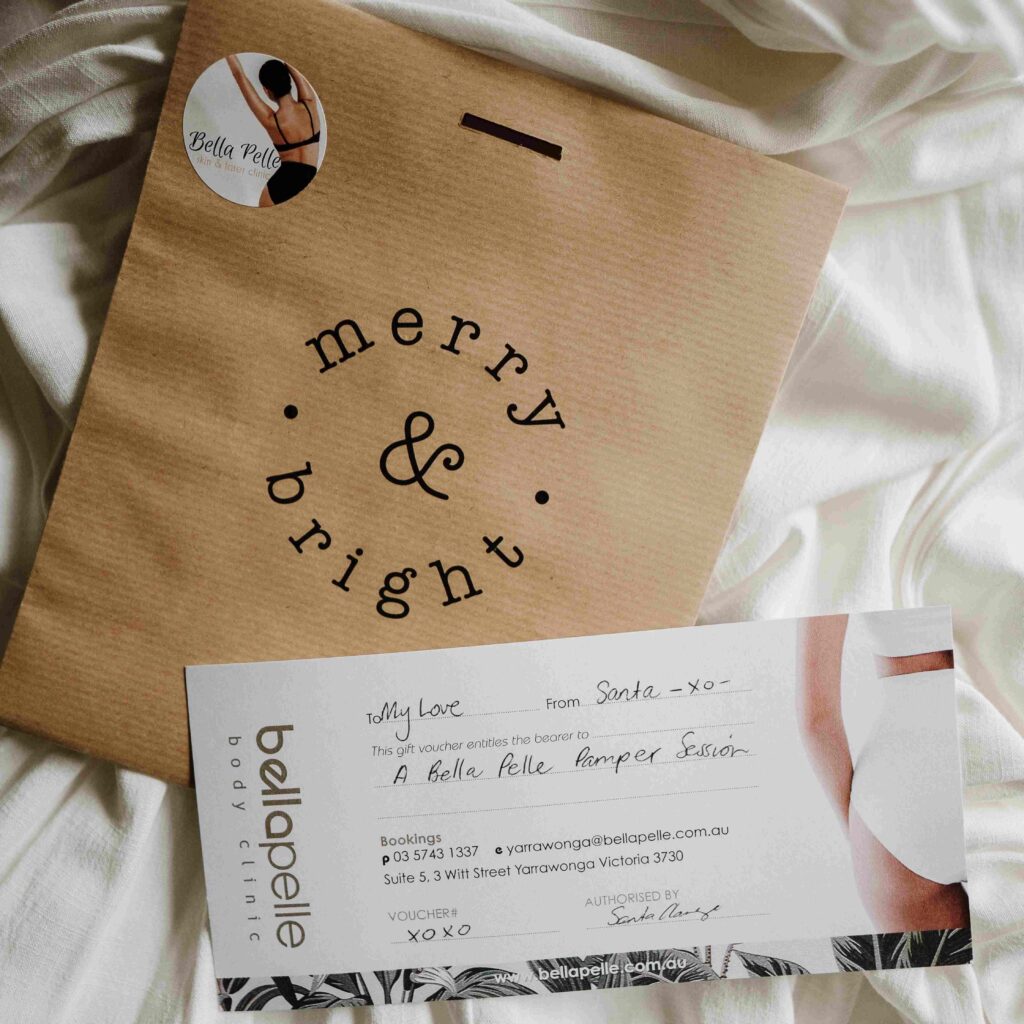 Bella Pelle
skin & laser clinic
merry
&
bright
bellapelle
body clinic
To My Love From Santa -xo-
This gift voucher entitles the bearer to
A Bella Pelle Pamper Session
Bookings
p 03 5743 1337 e yarrawonga@bellapelle.com.au
Suite 5, 3 Witt Street Yarrawonga Victoria 3730
VOUCHER# AUTHORISED BY
xoxo Santa
www.bellapelle.com.au